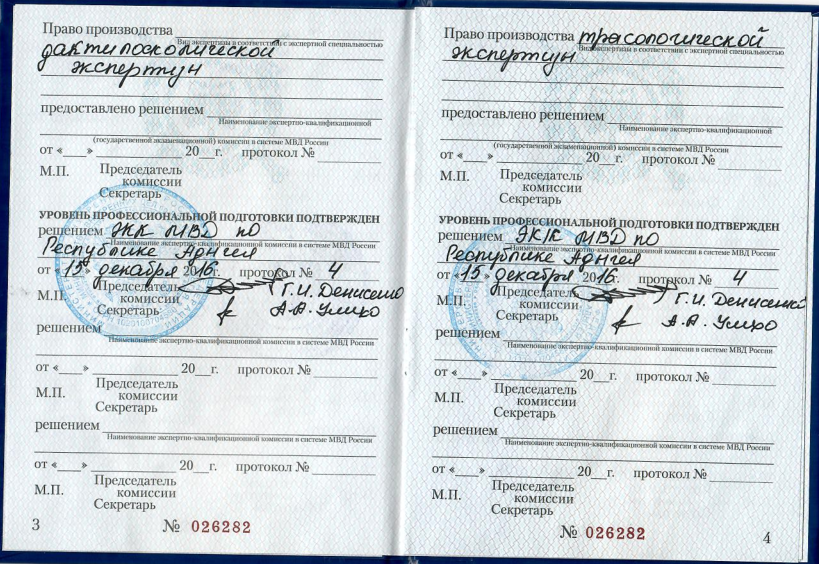 Право производства
Вид экспертизы в соответствии с экспертной специальностью
дактилоскопической
экспертизы
предоставлено решением
Наименование экспертно-квалификационной
(государственной экзаменационной) комиссии в системе МВД России
от «___» ____________ 20__г. протокол № ______
М.П. Председатель
комиссии
Секретарь
УРОВЕНЬ ПРОФЕССИОНАЛЬНОЙ ПОДГОТОВКИ ПОДТВЕРЖДЕН
решением ЭКК МВД по
Наименование экспертно-квалификационной комиссии в системе МВД России
Республике Адыгея
от «15» декабря 2016г. протокол № 4
М.П. Председатель
комиссии Г.И. Денисенко
Секретарь А.А. Умко
решением
Наименование экспертно-квалификационной комиссии в системе МВД России
от «___» ____________ 20__г. протокол № ______
М.П. Председатель
комиссии
Секретарь
решением
Наименование экспертно-квалификационной комиссии в системе МВД России
от «___» ____________ 20__г. протокол № ______
М.П. Председатель
комиссии
Секретарь
3 № 026282
Право производства трасологической
Вид экспертизы в соответствии с экспертной специальностью
экспертизы
предоставлено решением
Наименование экспертно-квалификационной
(государственной экзаменационной) комиссии в системе МВД России
от «___» ____________ 20__г. протокол № ______
М.П. Председатель
комиссии
Секретарь
УРОВЕНЬ ПРОФЕССИОНАЛЬНОЙ ПОДГОТОВКИ ПОДТВЕРЖДЕН
решением ЭКК МВД по
Наименование экспертно-квалификационной комиссии в системе МВД России
Республике Адыгея
от «15» декабря 2016г. протокол № 4
М.П. Председатель
комиссии Г.И. Денисенко
Секретарь А.А. Умко
решением
Наименование экспертно-квалификационной комиссии в системе МВД России
от «___» ____________ 20__г. протокол № ______
М.П. Председатель
комиссии
Секретарь
решением
Наименование экспертно-квалификационной комиссии в системе МВД России
от «___» ____________ 20__г. протокол № ______
М.П. Председатель
комиссии
Секретарь
№ 026282 4